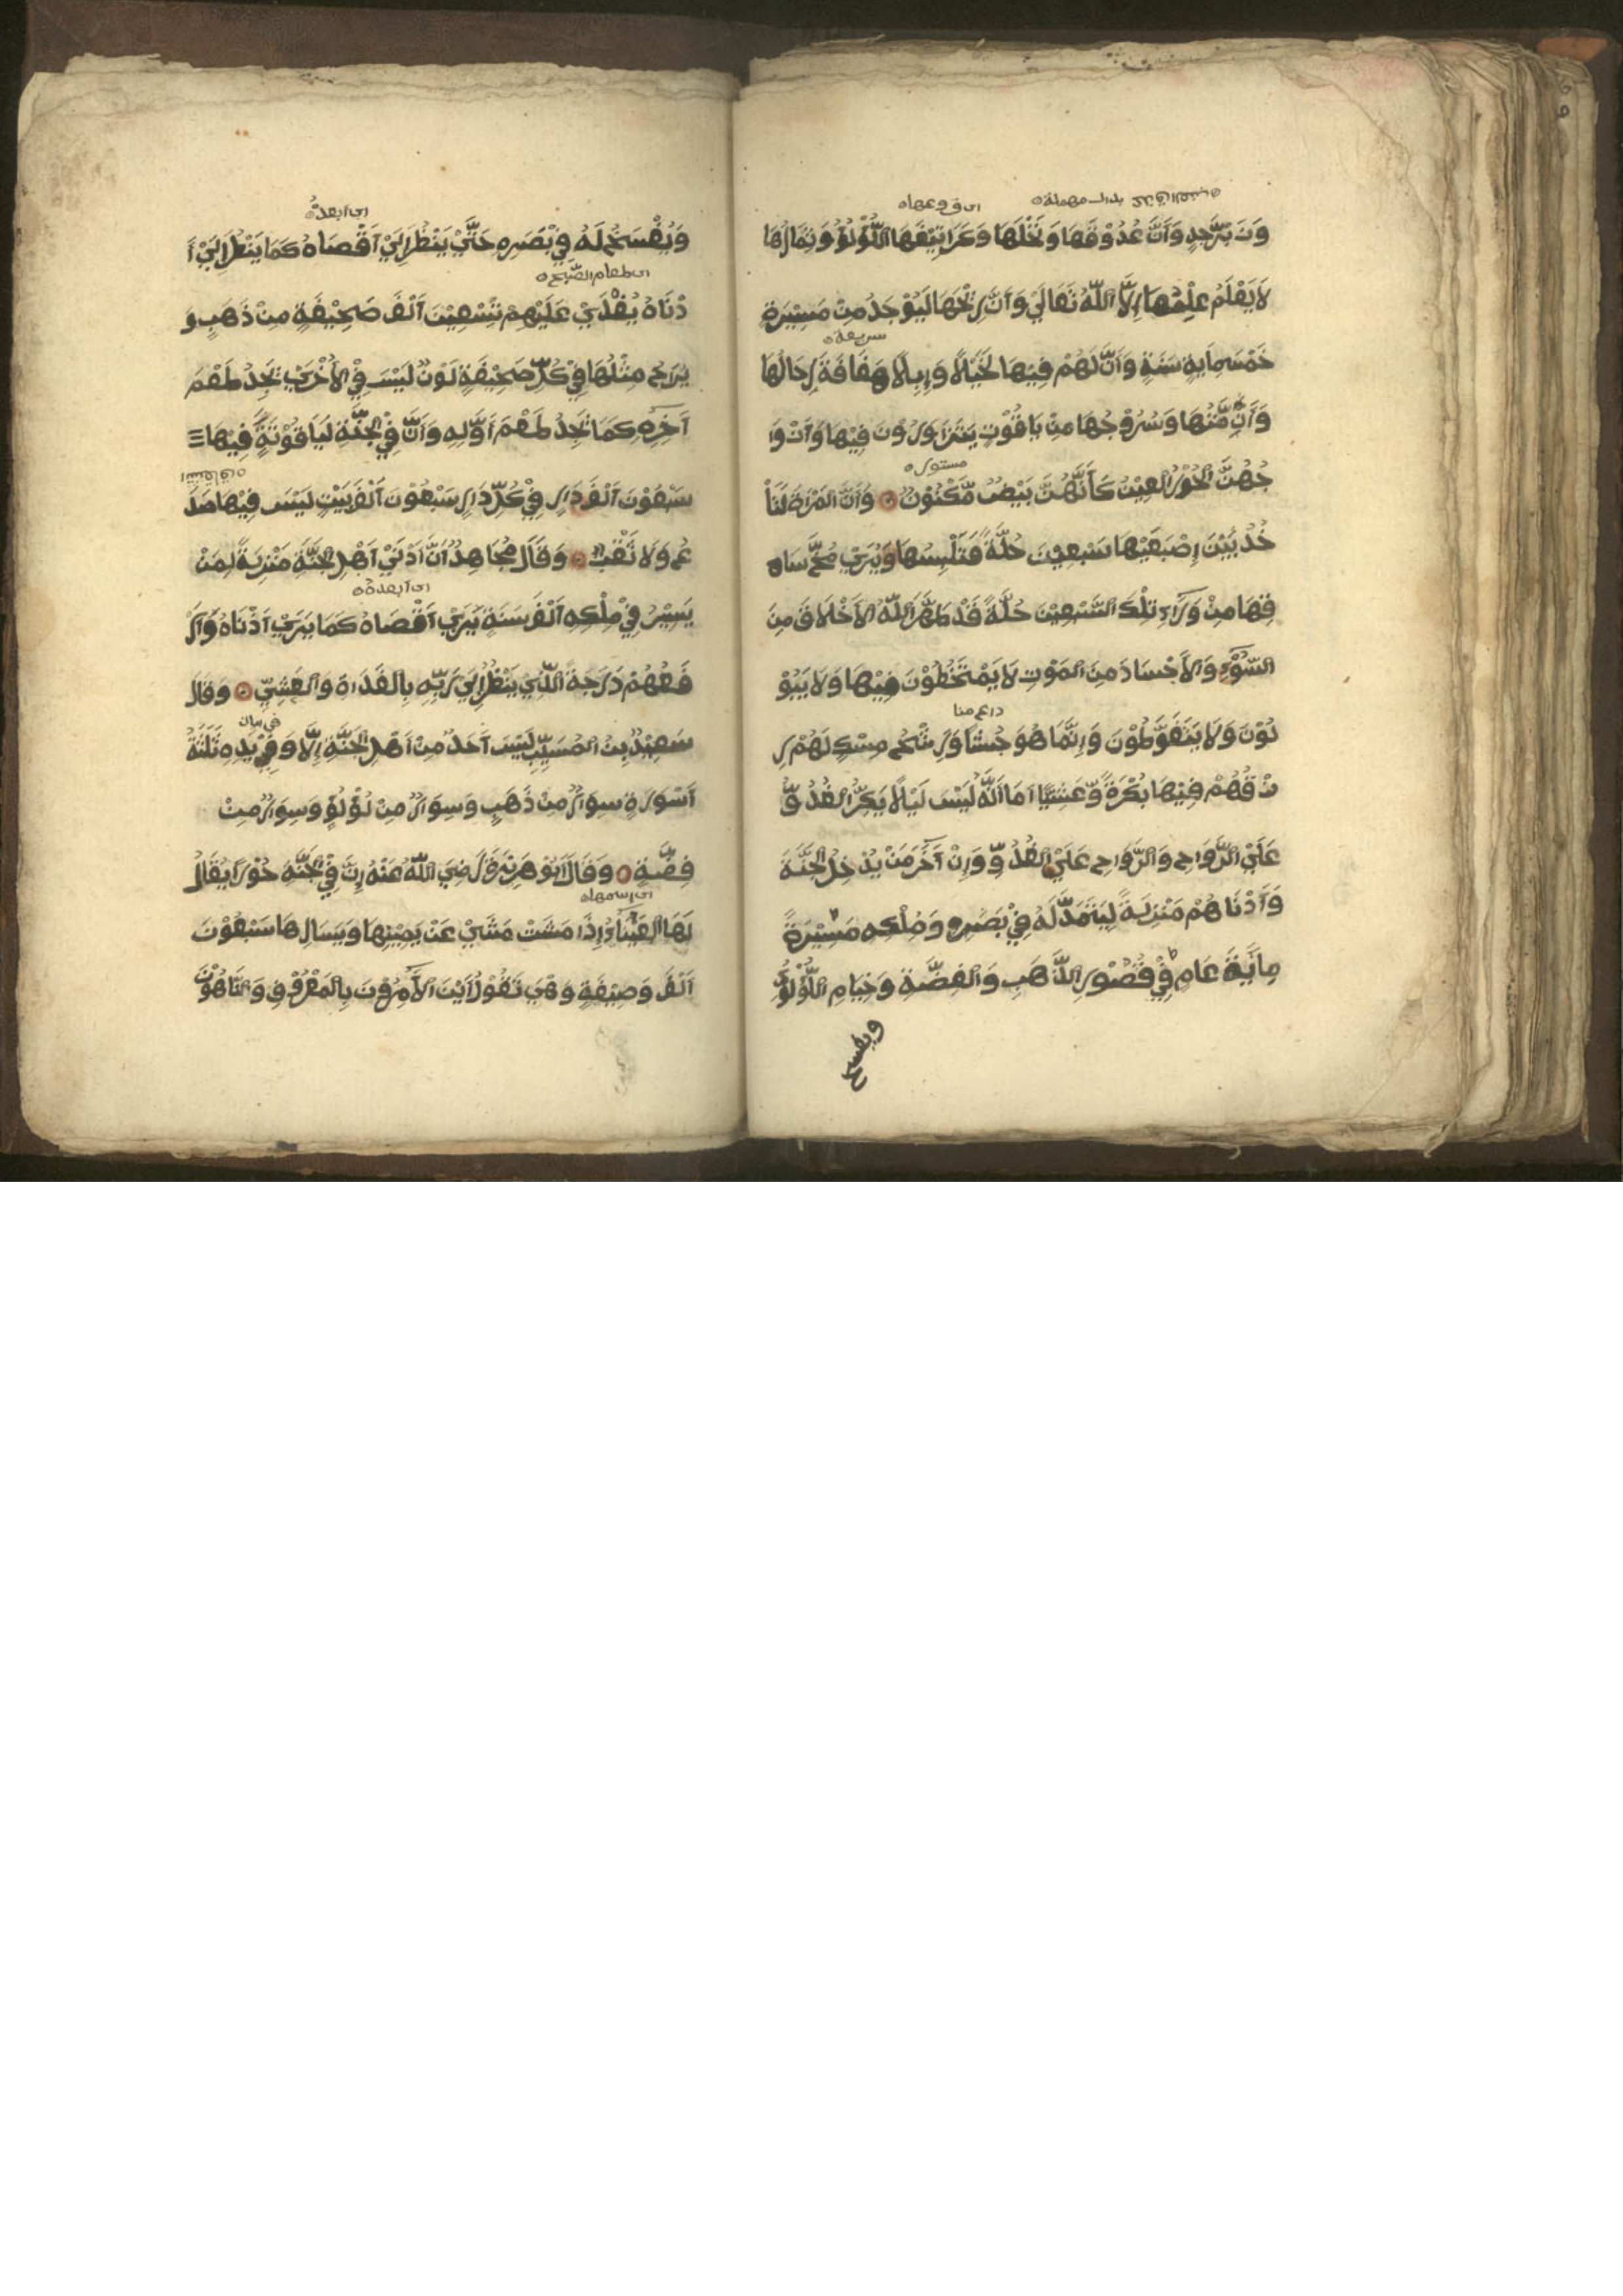 اي فروعها
وَنَ بَرْجَدٍ وَأَنَّ عُذُوْقَهَا وَنَخْلَهَا وَكَرَانِيْفَهَا اللُّؤْلُؤُ وَثِمَارُهَا
لَا يَعْلَمُ عِلْمَهَا اِلَّا اللّٰهُ تَعَالَيْ وَأَنَّ رِيْحَهَا لَيُوْجَدُ مِنْ مَسِيْرَةِ
سريعة
خَمْسِمِايَةِ سَنَةٍ وَأَنَّ لَهُمْ فِيْهَا لَخَيْلًا وَإِبِلًا هَفَّافَةً رِحَالُهَا
وَأَزِمَّتُهَا وَسُرُوْجُهَا مِنْ يَاقُوْتٍ يَتَزَاوَرُوْنَ فِيْهَا وَأَزْوَا
مستور
جُهُنَّ الْحُوْرُ الْعِيْنُ كَأَنَّهُنَّ بَيْضٌ مَّكْنُوْنٌ وَأَنَّ الْمَرْاَةَ لَتَأْ
خُذُ بَيْنَ إِصْبَعَيْهَا سَبْعِيْنَ حُلَّةً فَتَلْبِسُهَا وَيُرَيْ مُخُّ سَا
قِهَا مِنْ وَرَآءِ تِلْكَ السَّبْعِيْنَ حُلَّةً قَدْ طَهَّرَ اللّٰهُ الْاَخْلَاقَ مِنَ
السُّوْءِ وَالْاَجْسَادَ مِنَ الْمَوْتِ لَا يَمْتَخِطُوْنَ فِيْهَا وَلَا يَبُوْ
لُوْنَ وَلَا يَتَغَوَّطُوْنَ وَإِنَّمَا هُوَ جُشَآءٌ وَرَشْحُ مِسْكٍ لَهُمْ رِ
زْقُهُمْ فِيْهَا بُكْرَةً وَّعَشِيًّا اَمَا اَنَّهُ لَيْسَ لَيْلًا يَكِرُّ الْغُدُوُّ
عَلَيْ الرَّوَاحِ وَالرَّوَاحِ عَلَيْ الْغُدُوِّ وَإِنْ آخَرَ مَنْ يَدْخُلُ الْجَنَّةَ
وَأَدْنَاهُمْ مَنْزِلَةً لَيُمَدُّ لَهُ فِيْ بَصَرِهِ وَمُلْكِهِ مَسِيْرَةَ
مِايَةِ عَامٍ فِيْ قُصُوْرِ الذَّهَبِ وَالْفِضَّةِ وَخِيَامِ اللُّؤْلُؤِ
ويفسح
اي ابعده
وَيُفْسَحُ لَهُ فِيْ بَصَرِهِ حَتَّيْ يَنْظُرَ اِلَيْ اَقْصَاهُ كَمَا يَنْظُرُ اِلَيْ اَ
دْنَاهُ يُغْدَيْ عَلَيْهِمْ بِسَبْعِيْنَ اَلْفَ صَحِيْفَةٍ مِنْ ذَهَبٍ وَ
يُرَاحُ مِثْلُهَا فِيْ كُلِّ صَحِيْفَةٍ لَوْنٌ لَيْسَ فِيْ الْاُخْرَيْ يَجِدُ طَعْمَ
آخِرِهِ كَمَا يَجِدُ طَعْمَ اَوَّلِهِ وَاَنَّ فِيْ الْجَنَّةِ لَيَاقُوْتَةً فِيْهَا
سَبْعُوْنَ اَلْفَ دَارٍ فِيْ كُلِّ دَارٍ سَبْعُوْنَ اَلْفَ بَيْتٍ لَيْسَ فِيْهَا صَدْ
عٌ وَلَا ثَقْبٌ وَقَالَ مُجَاهِدُ اَنَّ اَدْنَيْ اَهْلِ الْجَنَّةِ مَنْزِلَةً لِمَنْ
اي ابعده
يَسِيْرُ فِيْ مُلْكِهِ اَلْفَ سَنَةٍ يَرَيْ اَقْصَاهُ كَمَا يَرَيْ اَدْنَاهُ وَاَرْ
فَعُهُمْ دَرَجَةً الَّذِيْ يَنْظُرُ اِلَيْ رَبِّهِ بِالْغَدَاةِ وَالْعَشِيِّ وَقَالَ
سَعِيْدُ بْنُ الْمُسَيِّبِ لَيْسَ اَحَدٌ مِنْ اَهْلِ الْجَنَّةِ اِلَّا وَفِيْ يَدِهِ ثَلٰثَةُ
اَسْوِرَةٍ سِوَارٌ مِنْ ذَهَبٍ وَسِوَارٌ مِنْ لُؤْلُؤٍ وَسِوَارٌ مِنْ
فِضَّةٍ وَقَالَ اَبُوْ هُرَيْرَةَ رَضِيَ اللّٰهُ عَنْهُ اِنَّ فِيْ الْجَنَّةِ حُوْرًا يُقَالُ
اي اسمها
لَهَا الْعَيْنَآءُ اِذَا مَشَتْ مَشَيْ عَنْ يَمِيْنِهَا وَيَسَارِهَا سَبْعُوْنَ
اَلْفَ وَصِيْفَةٍ وَهِيَ تَقُوْلُ اَيْنَ الْآمِرُوْنَ بِالْمَعْرُوْفِ وَالنَّاهُوْنَ